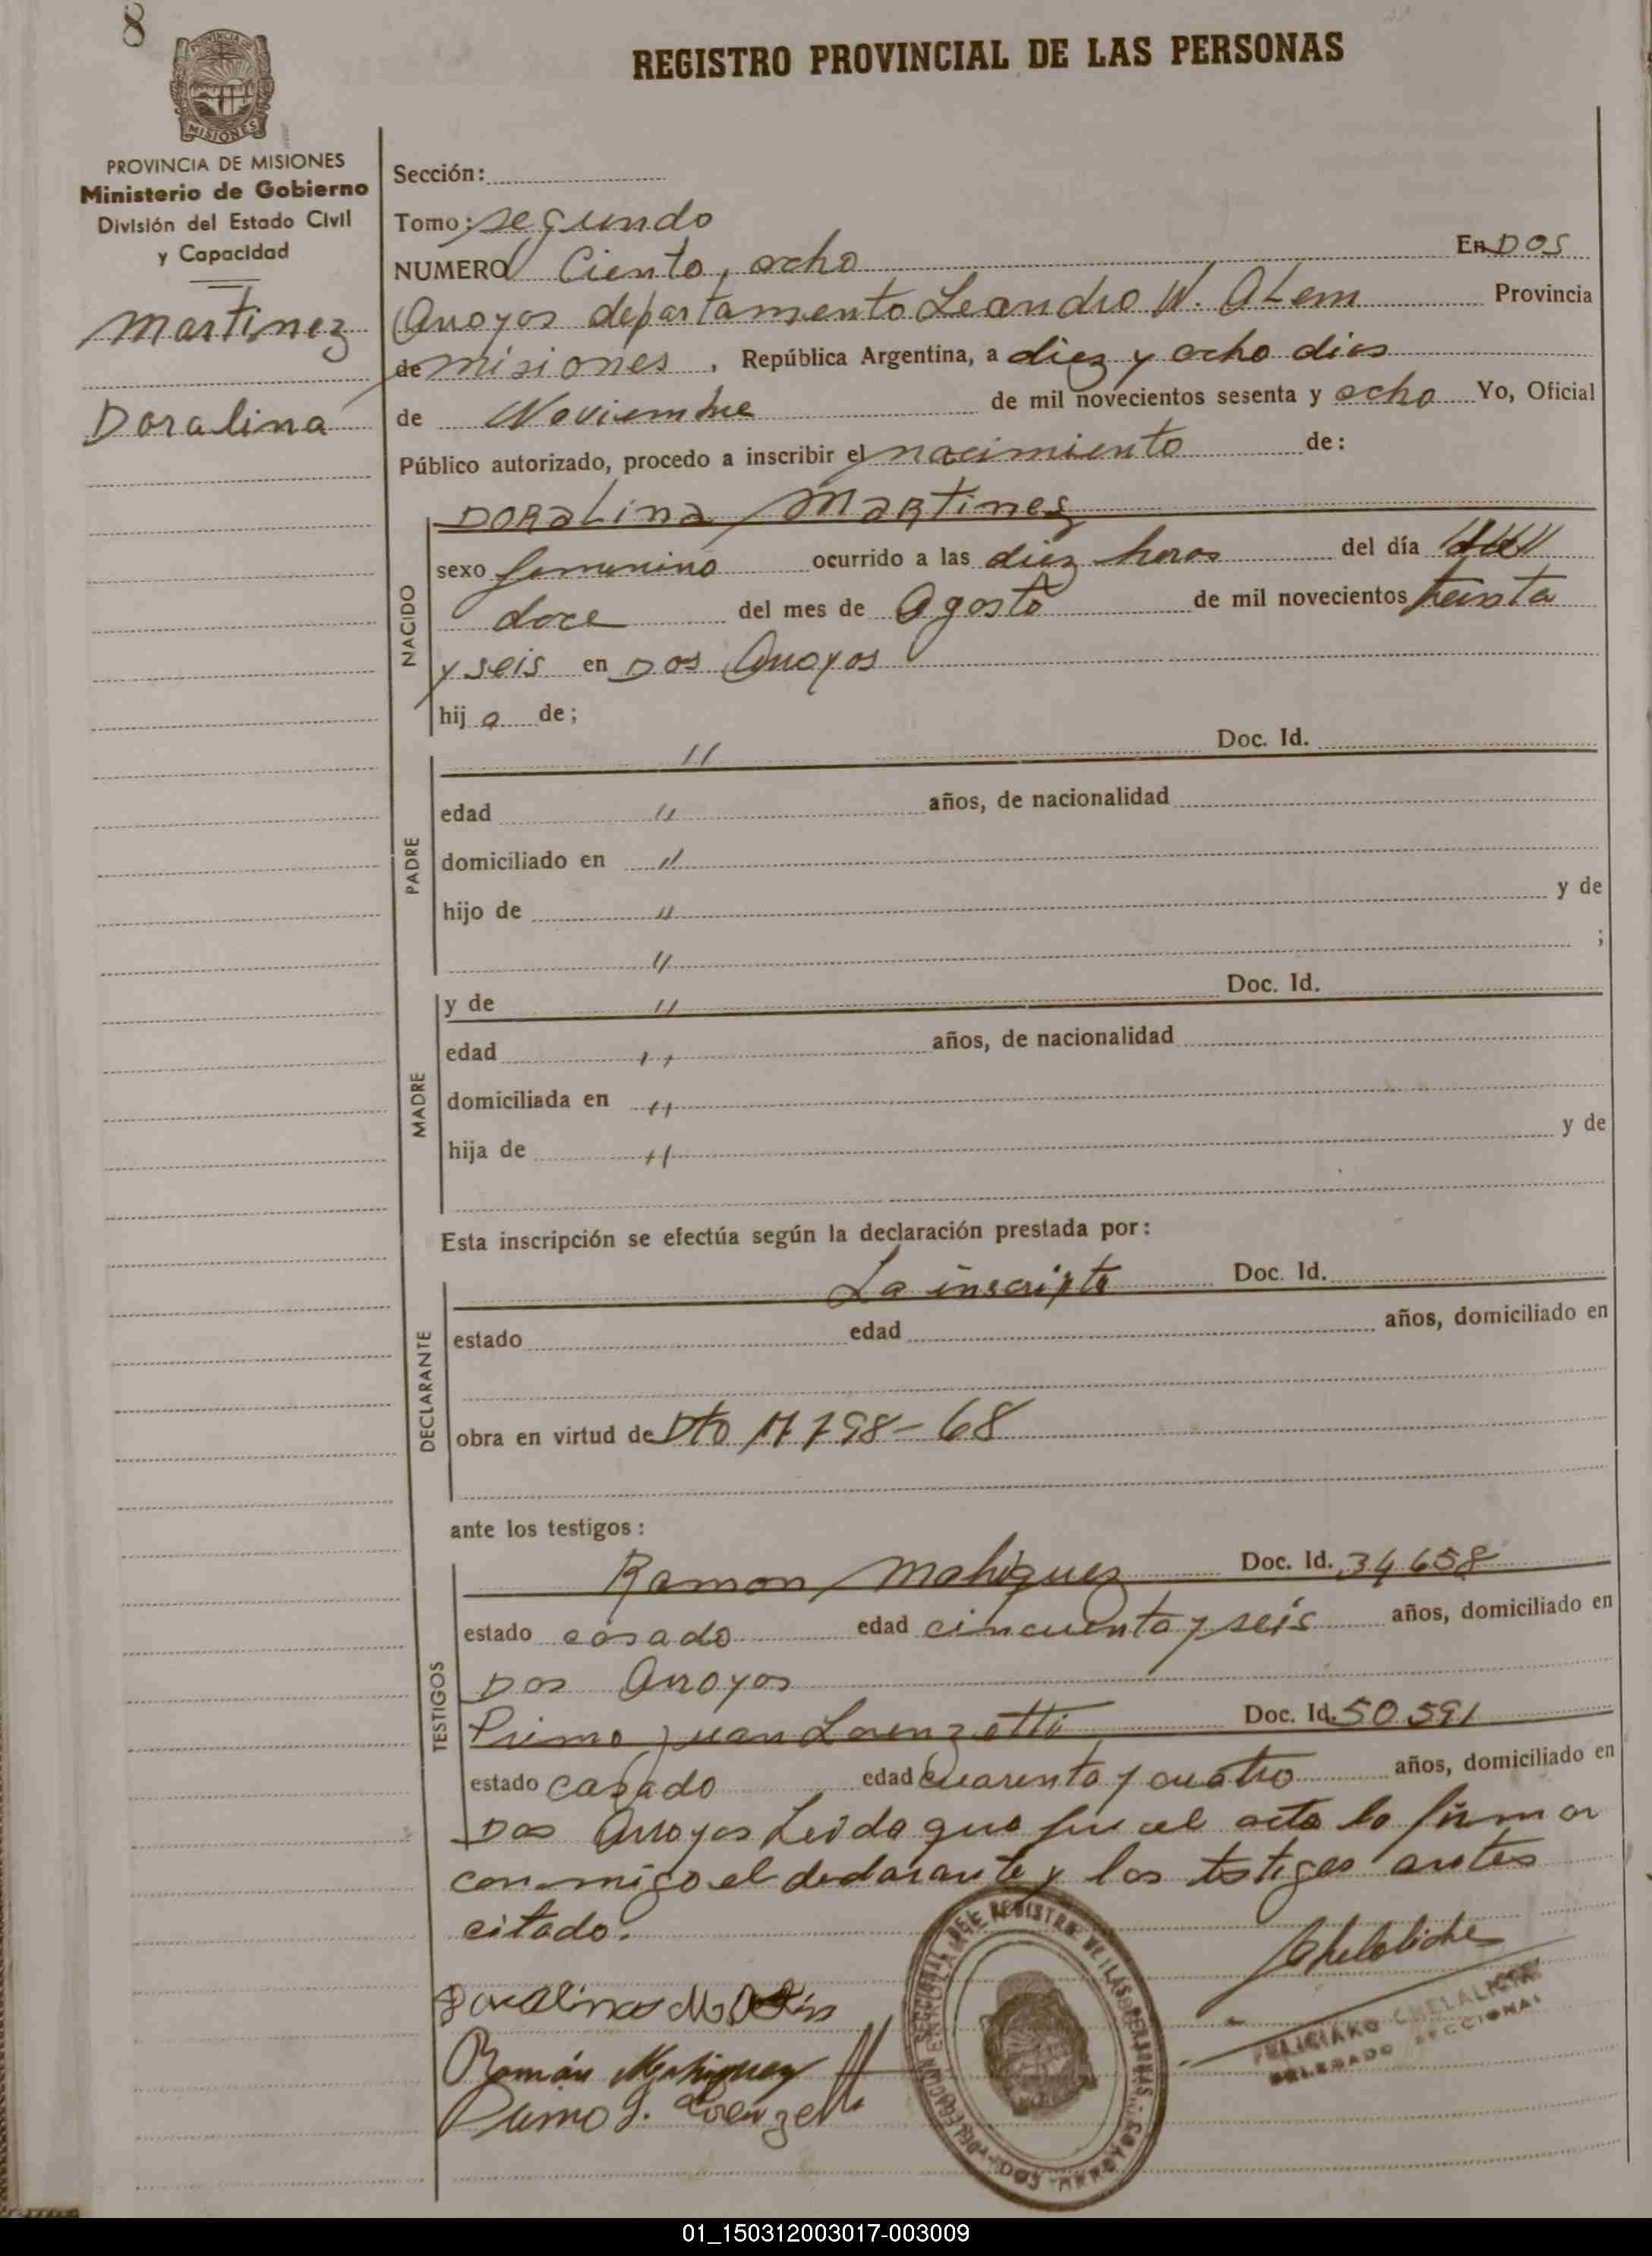 8
REGISTRO PROVINCIAL DE LAS PERSONAS
PROVINCIA DE MISIONES
MISIONES
PROVINCIA DE MISIONES
Ministerio de Gobierno
División del Estado Civil
y Capacidad
Martinez
Doralina
Sección:
Tomo: segundo
NUMERO Ciento, ocho En DOS
Arroyos departamento Leandro N. Alem Provincia
de misiones, República Argentina, a diez y ocho dias
de Noviembre de mil novecientos sesenta y ocho Yo, Oficial
Público autorizado, procedo a inscribir el nacimiento de:
DORALina Martinez
NACIDO
sexo femenino ocurrido a las diez horas del día
doce del mes de Agosto de mil novecientos treinta
y seis en Dos Arroyos
hij a de;
PADRE
" Doc. Id.
edad " años, de nacionalidad
domiciliado en "
hijo de " y de
" ;
MADRE
y de " Doc. Id.
edad " años, de nacionalidad
domiciliada en "
hija de " y de
Esta inscripción se efectúa según la declaración prestada por:
DECLARANTE
La inscripta Doc. Id.
estado edad años, domiciliado en
obra en virtud de Dto 1798-68
ante los testigos:
TESTIGOS
Ramon Mahiquez Doc. Id. 34.658
estado casado edad cincuenta y seis años, domiciliado en
Dos Arroyos
Primo Juan Lorenzetti Doc. Id. 50.591
estado casado edad cuarenta y cuatro años, domiciliado en
Dos Arroyos Leida que fue el acta la firman
conmigo el declarante y los testigos antes
citado.
Doralina
Román Mahiquez
Primo J. Lorenzetti
Chelaliche
FELICIANO CHELALICHE
DELEGADO SECCIONAL
REGISTRO DE LAS PERSONAS
DOS ARROYOS
01_150312003017-003009